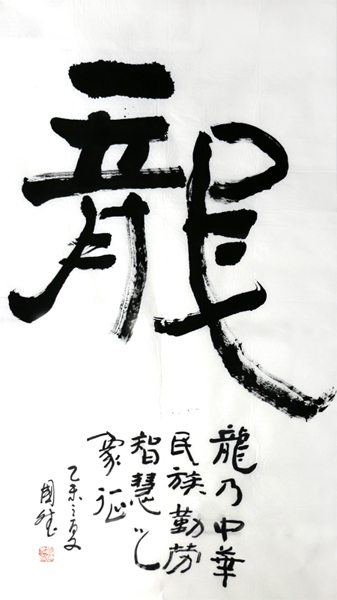 龍
龍乃中華
民族勤劳
智慧之
象征
乙未之夏
國